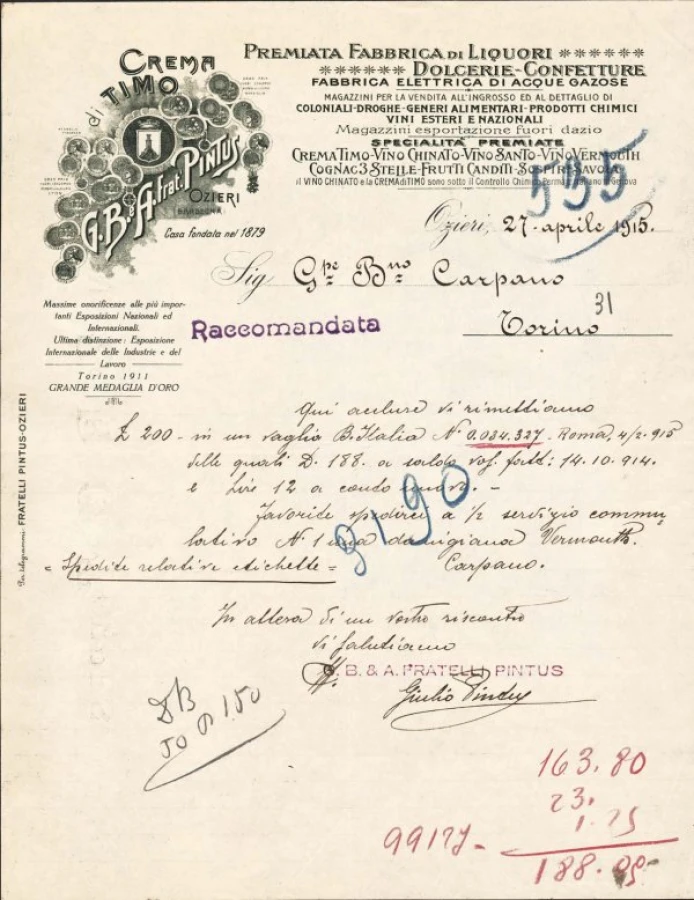 CREMA
di TIMO
G.B. e A. Frat. PINTUS
OZIERI
SARDEGNA
Casa fondata nel 1879
PREMIATA FABBRICA DI LIQUORI
DOLCERIE-CONFETTURE
FABBRICA ELETTRICA DI ACQUE GAZOSE
MAGAZZINI PER LA VENDITA ALL'INGROSSO ED AL DETTAGLIO DI
COLONIALI-DROGHE-GENERI ALIMENTARI-PRODOTTI CHIMICI
VINI ESTERI E NAZIONALI
Magazzini esportazione fuori dazio
SPECIALITÀ PREMIATE
CREMA TIMO-VINO CHINATO-VINO SANTO-VINO VERMOUTH
COGNAC 3 STELLE-FRUTTI CANDITI-SOSPIRI SAVOIA
il VINO CHINATO e la CREMA di TIMO sono sotto il Controllo Chimico Perm. Italiano Genova
535
Ozieri, 27-aprile 1915.
Sig Gpe Bno Carpano
31
Torino
Raccomandata
Massime onorificenze alle più impor-
tanti Esposizioni Nazionali ed
Internazionali.
Ultima distinzione: Esposizione
Internazionale delle Industrie e del
Lavoro
Torino 1911
GRANDE MEDAGLIA D'ORO
Per telegrammi: FRATELLI PINTUS-OZIERI
Qui acclure vi rimettiamo
£ 200- in un vaglia B. Italia N° 0.034.327 - Roma, 4/2-915
delle quali D. 188. a saldo vos. fatt: 14.10.914.
e Lire 12 a conto nuovo. -
Favorite spedirci a 1/2 servizio commu,
lativo N° 1 una damigiana Vermouth
Carpano.
= Spedite relative etichette =
9190
In attesa di un vostro riscontro
vi salutiamo
G. B. & A. FRATELLI PINTUS
Giulio Pintus
50 1.50
163.80
23.
1.25
99177-
188.05